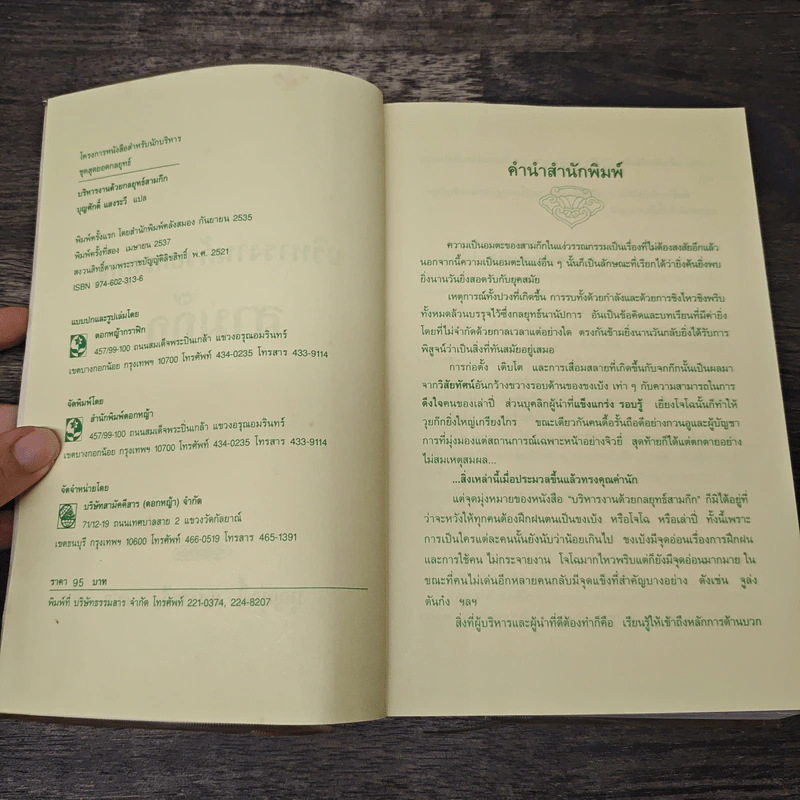 โครงการหนังสือสำหรับนักบริหาร
ชุดสุดยอดกลยุทธ์
บริหารงานด้วยกลยุทธ์สามก๊ก
บุญศักดิ์ แสงระวี แปล
พิมพ์ครั้งแรก โดยสำนักพิมพ์คลังสมอง กันยายน 2535
พิมพ์ครั้งที่สอง เมษายน 2537
สงวนสิทธิ์ตามพระราชบัญญัติลิขสิทธิ์ พ.ศ. 2521
ISBN 974-602-313-6
แบบปกและรูปเล่มโดย
ดอกหญ้ากราฟิก
457/99-100 ถนนสมเด็จพระปิ่นเกล้า แขวงอรุณอมรินทร์
เขตบางกอกน้อย กรุงเทพฯ 10700 โทรศัพท์ 434-0235 โทรสาร 433-9114
จัดพิมพ์โดย
สำนักพิมพ์ดอกหญ้า
457/99-100 ถนนสมเด็จพระปิ่นเกล้า แขวงอรุณอมรินทร์
เขตบางกอกน้อย กรุงเทพฯ 10700 โทรศัพท์ 434-0235 โทรสาร 433-9114
จัดจำหน่ายโดย
บริษัทสามัคคีสาร (ดอกหญ้า) จำกัด
71/12-19 ถนนเทศบาลสาย 2 แขวงวัดกัลยาณ์
เขตธนบุรี กรุงเทพฯ 10600 โทรศัพท์ 466-0519 โทรสาร 465-1391
ราคา 95 บาท
พิมพ์ที่ บริษัทธรรมสาร จำกัด โทรศัพท์ 221-0374, 224-8207
คำนำสำนักพิมพ์
ความเป็นอมตะของสามก๊กในแง่วรรณกรรมเป็นเรื่องที่ไม่ต้องสงสัยอีกแล้ว
นอกจากนี้ความเป็นอมตะในแง่อื่น ๆ นั้นก็เป็นลักษณะที่เรียกได้ว่ายิ่งค้นยิ่งพบ
ยิ่งนานวันยิ่งสอดรับกับยุคสมัย
เหตุการณ์ทั้งปวงที่เกิดขึ้น การรบทั้งด้วยกำลังและด้วยการชิงไหวชิงพริบ
ทั้งหมดล้วนบรรจุไว้ซึ่งกลยุทธ์นานัปการ อันเป็นข้อคิดและบทเรียนที่มีค่ายิ่ง
โดยที่ไม่จำกัดด้วยกาลเวลาแต่อย่างใด ตรงกันข้ามยิ่งนานวันกลับยิ่งได้รับการ
พิสูจน์ว่าเป็นสิ่งที่ทันสมัยอยู่เสมอ
การก่อตั้ง เติบโต และการเสื่อมสลายที่เกิดขึ้นกับจกก๊กนั้นเป็นผลมา
จากวิสัยทัศน์อันกว้างขวางรอบด้านของขงเบ้ง เท่า ๆ กับความสามารถในการ
ดึงใจคนของเล่าปี่ ส่วนบุคลิกผู้นำที่แข็งแกร่ง รอบรู้ เยี่ยงโจโฉนั้นก็ทำให้
วุยก๊กยิ่งใหญ่เกรียงไกร ขณะเดียวกันคนดื้อรั้นถือดีอย่างกวนอูและผู้บัญชา
การที่มุ่งมองแต่สถานการณ์เฉพาะหน้าอย่างจิวยี่ สุดท้ายก็ได้แต่ตกตายอย่าง
ไม่สมเหตุสมผล...
...สิ่งเหล่านี้เมื่อประมวลขึ้นแล้วทรงคุณค่านัก
แต่จุดมุ่งหมายของหนังสือ "บริหารงานด้วยกลยุทธ์สามก๊ก" ก็มิได้อยู่ที่
ว่าจะหวังให้ทุกคนต้องฝึกฝนตนเป็นขงเบ้ง หรือโจโฉ หรือเล่าปี่ ทั้งนี้เพราะ
การเป็นใครแต่ละคนนั้นยังนับว่าน้อยเกินไป ขงเบ้งมีจุดอ่อนเรื่องการฝึกฝน
และการใช้คน ไม่กระจายงาน โจโฉมากไหวพริบแต่ก็ยังมีจุดอ่อนมากมาย ใน
ขณะที่คนไม่เด่นอีกหลายคนกลับมีจุดแข็งที่สำคัญบางอย่าง ดังเช่น จูล่ง
ตันก๋ง ฯลฯ
สิ่งที่ผู้บริหารและผู้นำที่ดีต้องทำก็คือ เรียนรู้ให้เข้าถึงหลักการด้านบวก